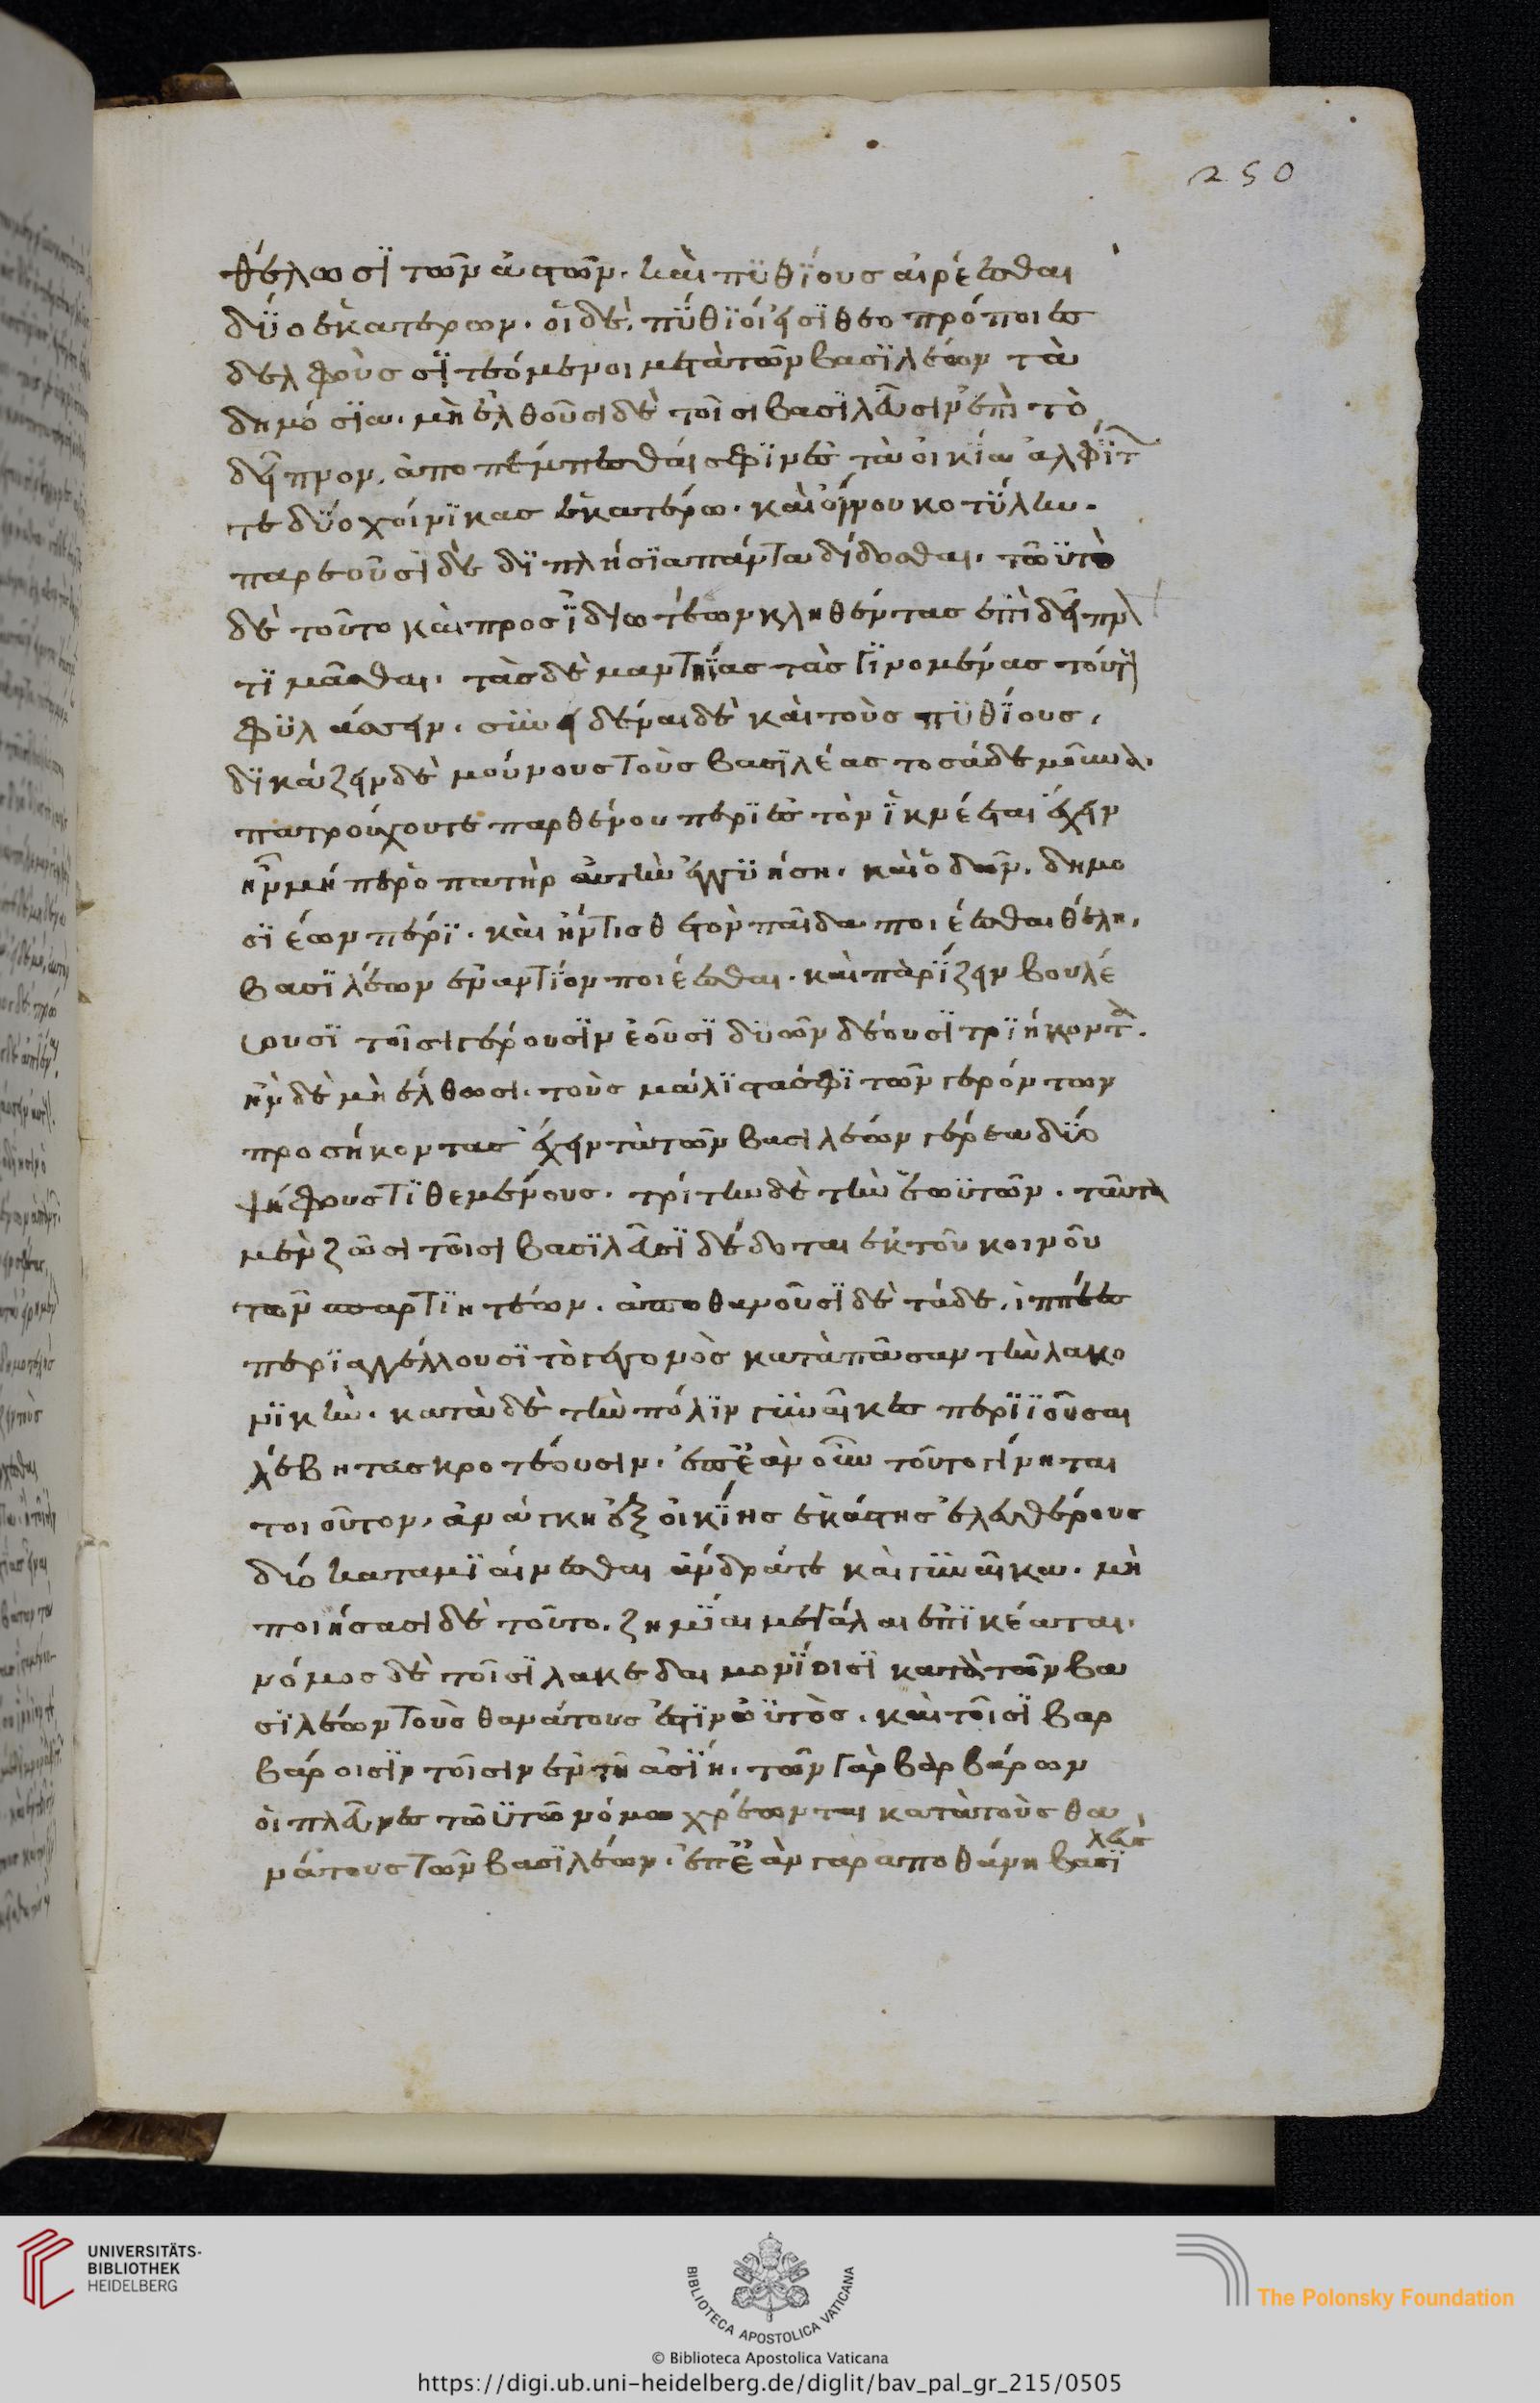 250
θέλωσϊ τῶν ἀστῶν. καὶ πϋθΐους αἱρέεσθαι
δΰο ἑκάτερων. οἱ δὲ πΰθϊοί εἰσϊ θεοπρόποι ἐς
δελφοὺς σϊτεόμενοι μετὰ τῶν βασϊλέων τὰ
δημόσϊα. μὴ ἐλθοῦσι δὲ τοῖσι βασϊλεῦσιν ἐπὶ τὸ
δεῖπνον, ἀποπέμπεσθαί σφϊν ἐς τὰ οἰκΐα ἀλφΐτ
τε δΰο χοίνϊκας ἑκατέρω. καὶ οἴνου κοτΰλην.
παρεοῦσϊ δὲ δϊπλήσϊα πάντα δίδοσθαι. τὢυτὸ
δὲ τοῦτο καὶ προσ ϊδιωτέων κληθέντας ἐπὶ δεῖπν
τϊμᾶσθαι. τὰς δὲ μαντηΐας τὰς γϊνομένας τούτ
φϋλάσσειν. συνειδέναι δὲ καὶ τοὺς πϋθΐους.
δϊκάζειν δὲ μούνους τοὺς βασϊλέας τοσάδε μοῦνα.
πατρούχου τε παρθένου πέρϊ ἐς τὸν ϊκνέεται ἔχειν
ἢν μή περ ὁ πατὴρ αὐτὴν ἐγγϋήση. καὶ ὁδῶν. δημο
σϊέων πέρϊ. καὶ ἤν τις θετὸν παῖδα ποιέεσθαι θέλη.
βασϊλέων ἐναντΐον ποιέεσθαι. καὶ παρΐζειν βουλέ
ουσϊ τοῖσι γέρουσϊν ἐοῦσϊ δυῶν δέουσϊ τρϊήκοντα.
ἢν δὲ μὴ ἔλθωσι. τοὺς μάλϊστά σφϊ τῶν γερόντων
προσήκοντας ἔχειν τὰ τῶν βασιλέων γέρεα δΰο
ψήφους τϊθεμένους. τρίτην δὲ τὴν ἑωϋτῶν. ταῦτα
μὲν ζῶσι τοῖσι βασϊλεῦσϊ δέδοται ἐκ τοῦ κοινοῦ
τῶν σπαρτϊητέων. ἀποθανοῦσϊ δὲ τάδε. ἱππέες
περϊαγγέλλουσϊ τὸ γεγονὸς κατὰ πᾶσαν τὴν λακο
νϊκὴν. κατὰ δὲ τὴν πόλϊν γυναῖκες περϊϊοῦσαι
λέβητας κροτέουσιν. ἐπεὰν οὖν τοῦτο γίνηται
τοιοῦτον, ἀνάγκη ἐξ οἰκΐης ἑκάστης ἐλευθέρους
δύο καταμϊαίνεσθαι ἄνδρά τε καὶ γυναῖκα. μὴ
ποιήσασι δὲ τοῦτο. ζημΐαι μεγάλαι ἐπϊκέαται.
νόμος δὲ τοῖσϊ λακεδαιμονΐοισϊ κατὰ τῶν βα
σϊλέων τοὺς θανάτους ἐστϊν ὡϋτὸς. καὶ τοῖσϊ βαρ
βάροισϊν τοῖσιν ἐν τῆ ἀσΐη. τῶν γὰρ βαρβάρων
οἱ πλεῦνες τῶϋτῶ νόμω χρέωνται κατὰ τοὺς θα
νάτους τῶν βασϊλέων. ἐπεὰν γὰρ ἀποθάνη βασϊ
λεὺς
UNIVERSITÄTS-
BIBLIOTHEK
HEIDELBERG
BIBLIOTECA APOSTOLICA VATICANA
The Polonsky Foundation
© Biblioteca Apostolica Vaticana
https://digi.ub.uni-heidelberg.de/diglit/bav_pal_gr_215/0505